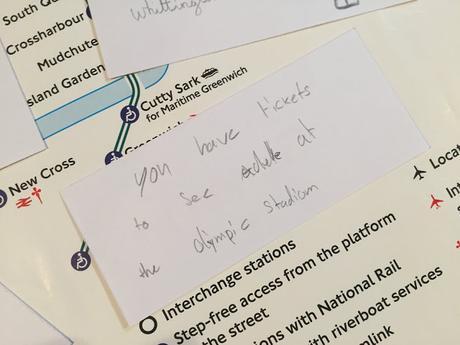 South Qu
whittings
Crossharbour
Mudchute
sland Garden
Cutty Sark
for Maritime Greenwich
New Cross
you have tickets
to see Adele at
the olympic stadium
Locat
Interchange stations
Step-free access from the platform
the street
ions with National Rail
with riverboat services